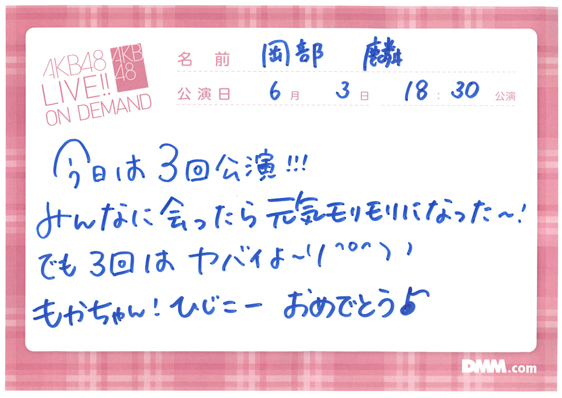 AKB48
LIVE!!
ON DEMAND
AKB
48
名前 岡部 麟
公演日 6月 3日 18:30 公演
今日は3回公演!!!
みんなに会ったら元気モリモリになった〜!
でも3回は ヤバイよ〜!(^o^))
もかちゃん!ひじこー おめでとう♪
DMM.com